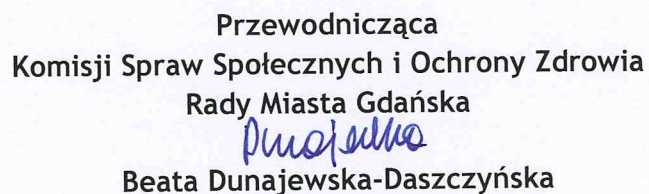 Przewodnicząca
Komisji Spraw Społecznych i Ochrony Zdrowia
Rady Miasta Gdańska
Beata Dunajewska-Daszczyńska